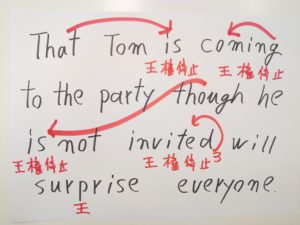 That Tom is coming
王権停止 王権停止
to the party though he
is not invited will
王権停止 王権停止 3
surprise everyone.
王